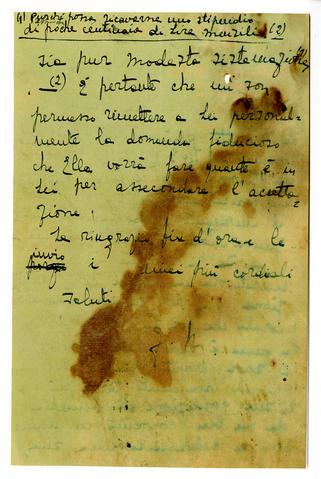 (1) Purchè possa ricavarne uno stipendio
di poche centinaia di lire mensili (2)
sia pur modesta sistemazione
(2) È pertanto che mi son
permesso rimettere a Lei personal-
mente la domanda fiducioso
che Ella vorrà fare quanto è in
Lei per assecondare l'accetta-
zione.
La ringrazio fin d'ora e le
invio
porgo i miei più cordiali
saluti